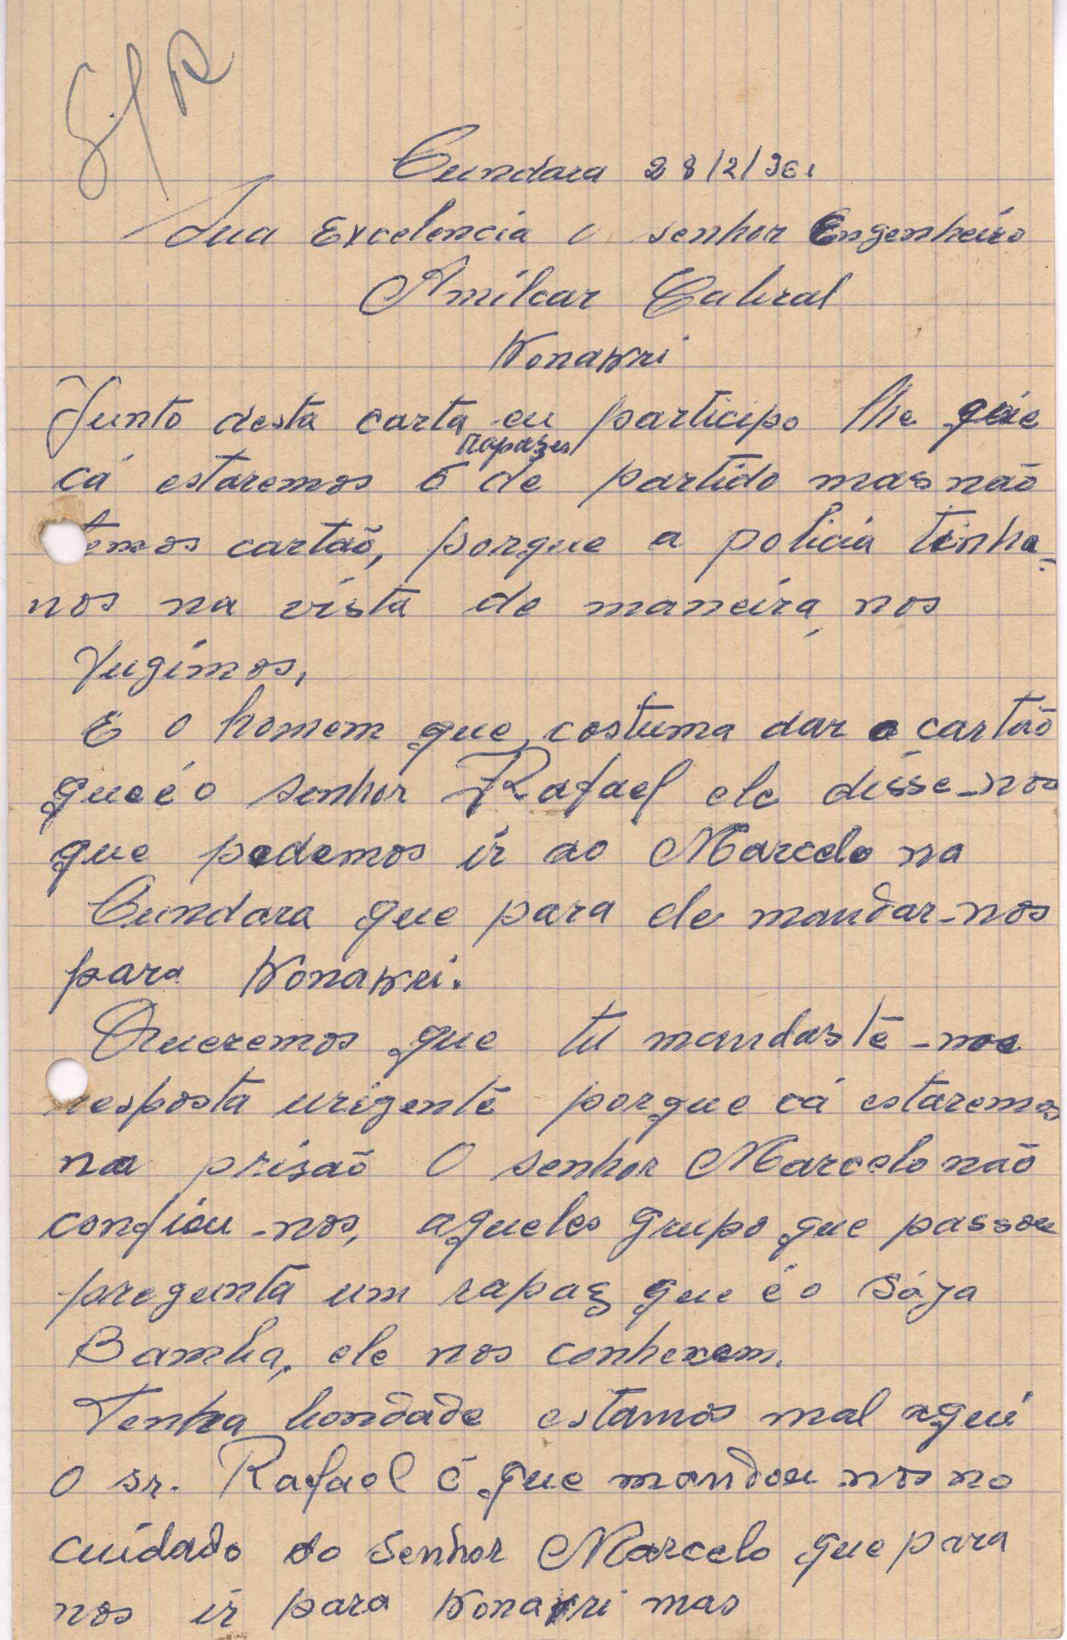 S/R
Cundara 28/2/961
Sua Excelencia o senhor Engenheiro
Amílcar Cabral
Konakri
Junto desta carta eu participo lhe que
rapazes
cá estaremos 6 de partido mas não
temos cartão, porque a policia tinha-
nos na vista de maneira nos
fugimos,
E o homem que costuma dar o cartão
que é o senhor Rafael ele disse-nos
que podemos ir ao Marcelo na
Cundara que para ele mandar-nos
para Konakri.
Queremos que tu mandaste-nos
resposta urigente porque cá estaremos
na prisão O senhor Marcelo não
confiou-nos, aqueles grupo que passou
pregunta um rapaz que é o
Bamba, ele nos conhecem.
Tenha bondade estamos mal aqui
O sr. Rafael é que mandou nos no
cuidado do Senhor Marcelo que para
nos ir para Konakri mas